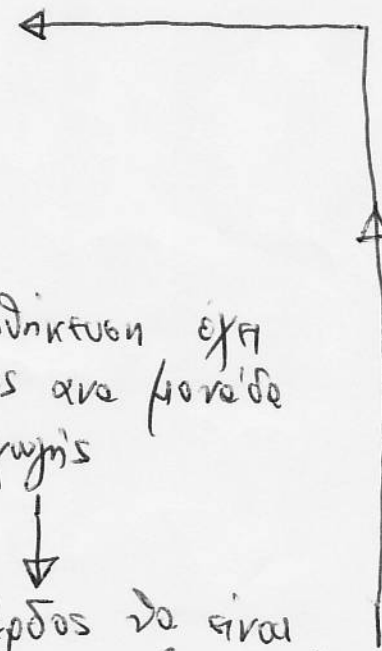 θήκευση έχει
ς ανα μονάδα
γωγής
ρδος να είναι